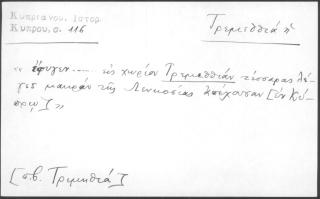 Κυπριανοῦ, Ἱστορ.
Κύπρου, σ. 116
Τρεμεθθιά ἡ
« ἔφυγεν.... εἰς χωρίον Τρεμεθθιάν τέσσαρας λέ-
γες μακράν τῆς Λευκοσίας ἀπέχουσαν [ἐν Κύ-
πρῳ] »
[σ.β. Τριμηθιά]